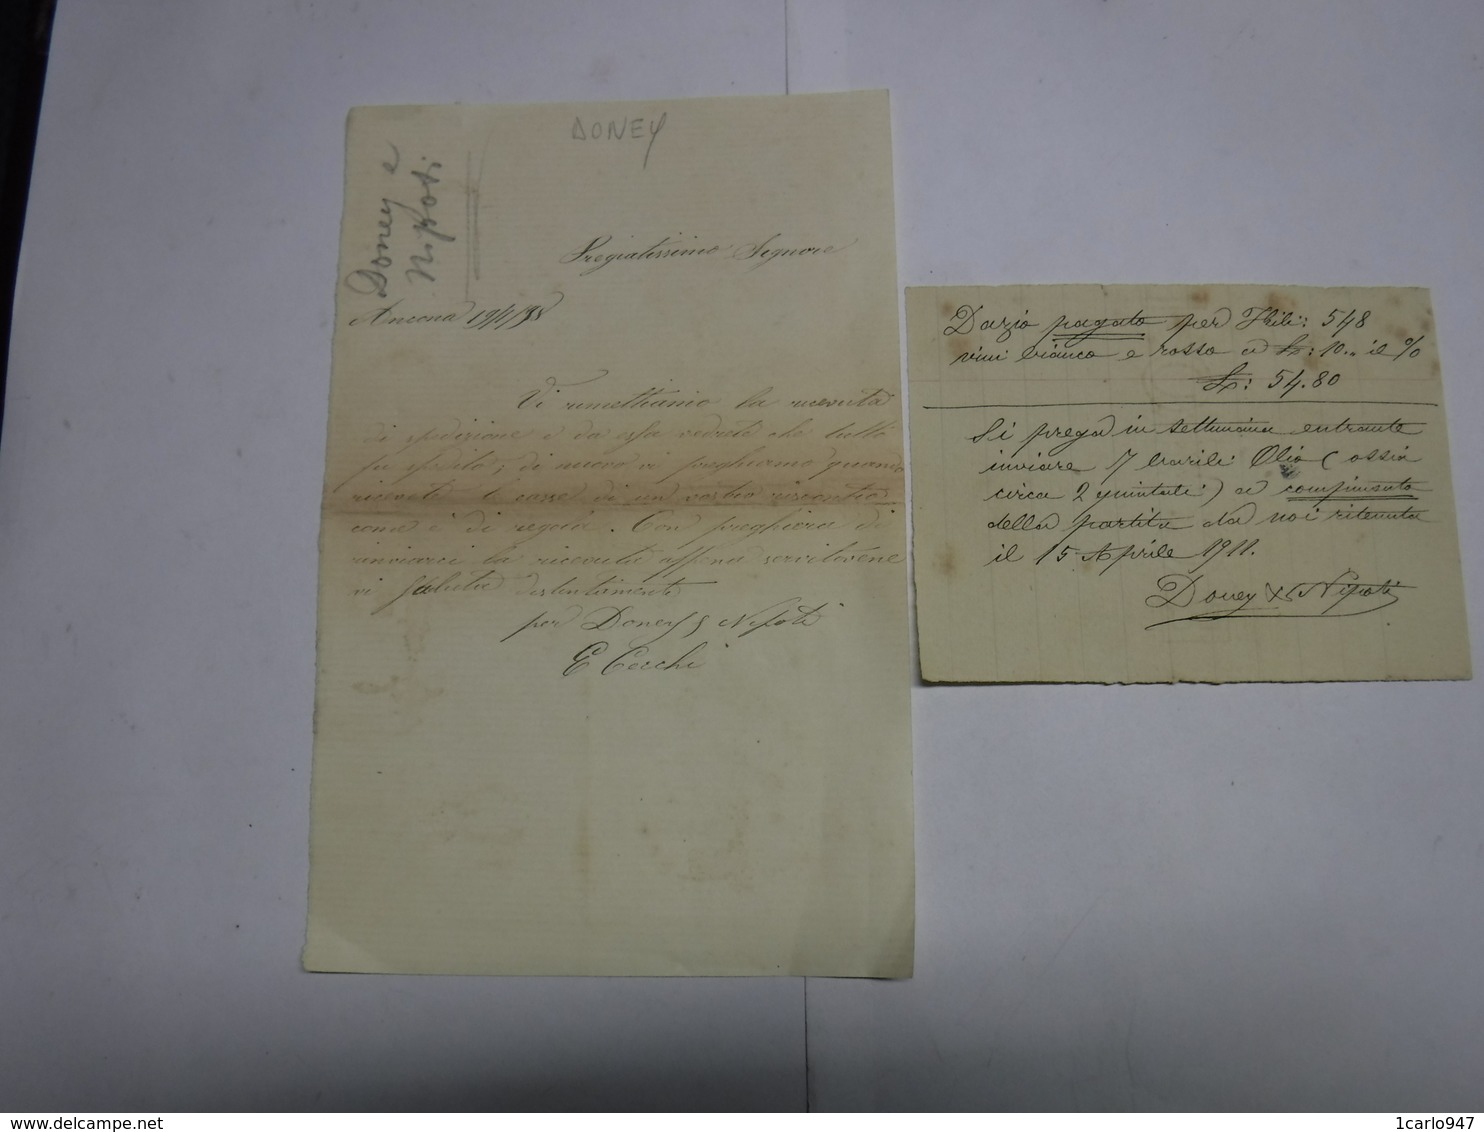 DONEY
Doney e
Nipoti
Pregiatissimo Signore
Ancona 19/4/98
Vi rimettiamo la ricevuta
di spedizione e da essa vedrete che tutto
fu spedito; di nuovo vi preghiamo quando
ricevete le casse di un vostro riscontro
come è di regola. Con preghiera di
rinviarci la ricevuta appena servitovene
vi saluta distintamente
per Doney & Nipoti
E Cecchi
Dazio pagato per Ftili: 548
vini bianco e rosso a L: 10.. il %
L: 54.80
Si prega in settimana entrante
inviare 7 barili Olio (ossia
circa 2 quintali) a compimento
della partita da noi ritenuta
il 15 Aprile 1911.
Doney & Nipoti
delcampe.net
1carlo947